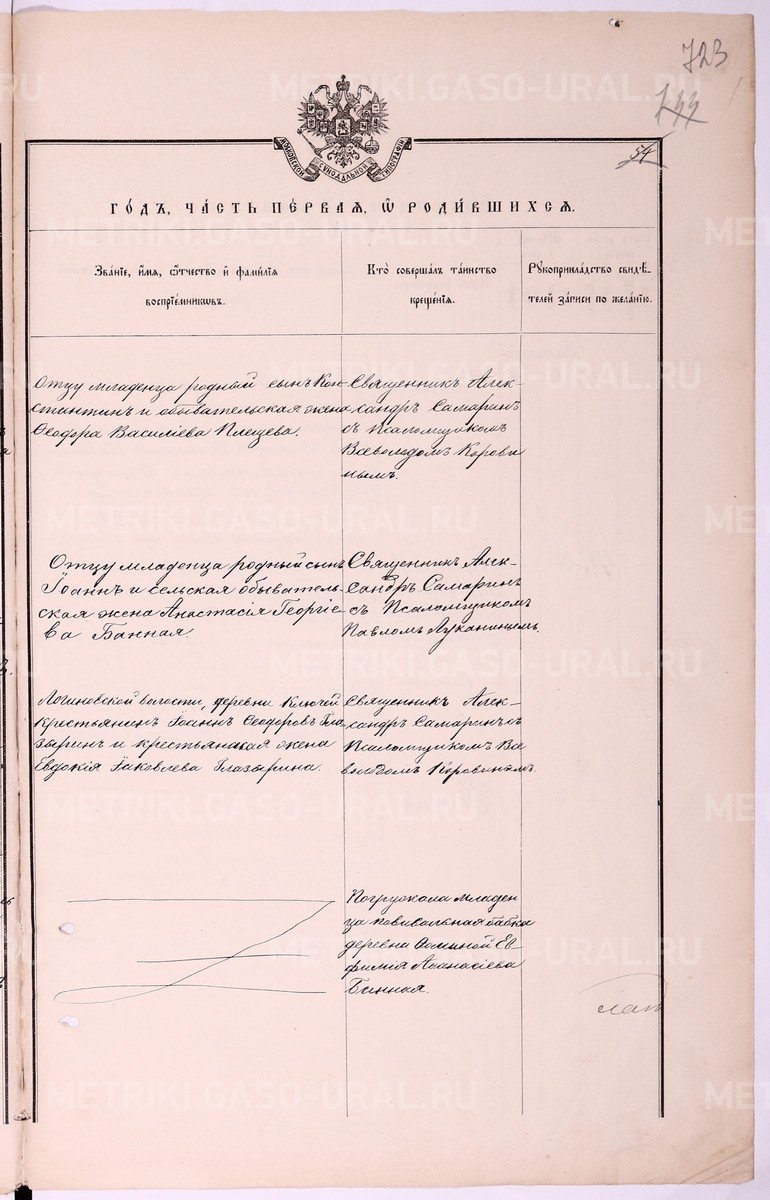 723
144
54
МОСКОВСКОЙ СѴНОДАЛЬНОЙ ТИПОГРАФІИ
ГО́ДЪ, ЧА́СТЬ ПЕ́РВАЯ, Ѽ РОДИ́ВШИХСЯ.
Зва́нїе, и́мя, ѻ́тчество и҆ фами́лїя
воспрїе́мникѡвъ.
Кто̀ соверша́лъ та́инство
креще́нїя.
Рꙋкоприкла́дство свидѣ́-
телей за́писи по жела́нїю.
Отцу младенца родный сынъ Кон-
стантинъ и обывательская жена
Ѳеодора Василіева Плещева.
Священникъ Алек-
сандръ Самаринъ
съ Псаломщикомъ
Всеволодомъ Корови-
нымъ.
Отцу младенца родный сынъ
Іоаннъ и сельская обыватель-
ская жена Анастасія Георгіе-
ва Банная.
Священникъ Алек-
сандръ Самаринъ
съ Псаломщикомъ
Павломъ Луканинымъ.
Логиновской волости, деревни Ключей
крестьянинъ Іоаннъ Ѳеодоровъ Гла-
зыринъ и крестьянская жена
Евдокія Іаковлева Глазырина.
Священникъ Алек-
сандръ Самаринъ съ
Псаломщикомъ Все-
володомъ Коровинымъ.
Погружала младен-
ца повивальная бабка
деревни Ев-
фимія Аѳанасіева
Банная.
METRIKI.GASO-URAL.RU